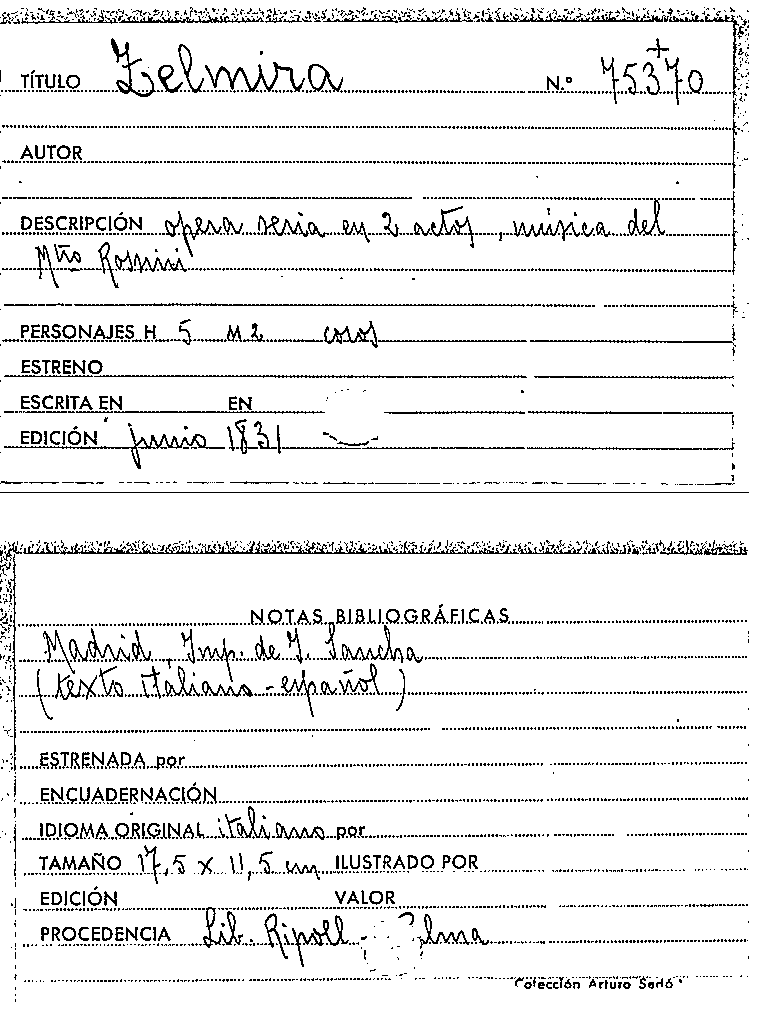 TÍTULO Zelmira N.º 75370 +
AUTOR
DESCRIPCIÓN opera seria en 2 actos, música del
Mtro Rossini
PERSONAJES H 5 M 2 coros
ESTRENO
ESCRITA EN EN
EDICIÓN junio 1831
NOTAS BIBLIOGRÁFICAS
Madrid, Imp. de J. Sancha
(texto italiano-español)
ESTRENADA por
ENCUADERNACIÓN
IDIOMA ORIGINAL italiano por
TAMAÑO 17,5 x 11,5 cm ILUSTRADO POR
EDICIÓN VALOR
PROCEDENCIA Lib. Ripoll -
Colección Arturo Sedó